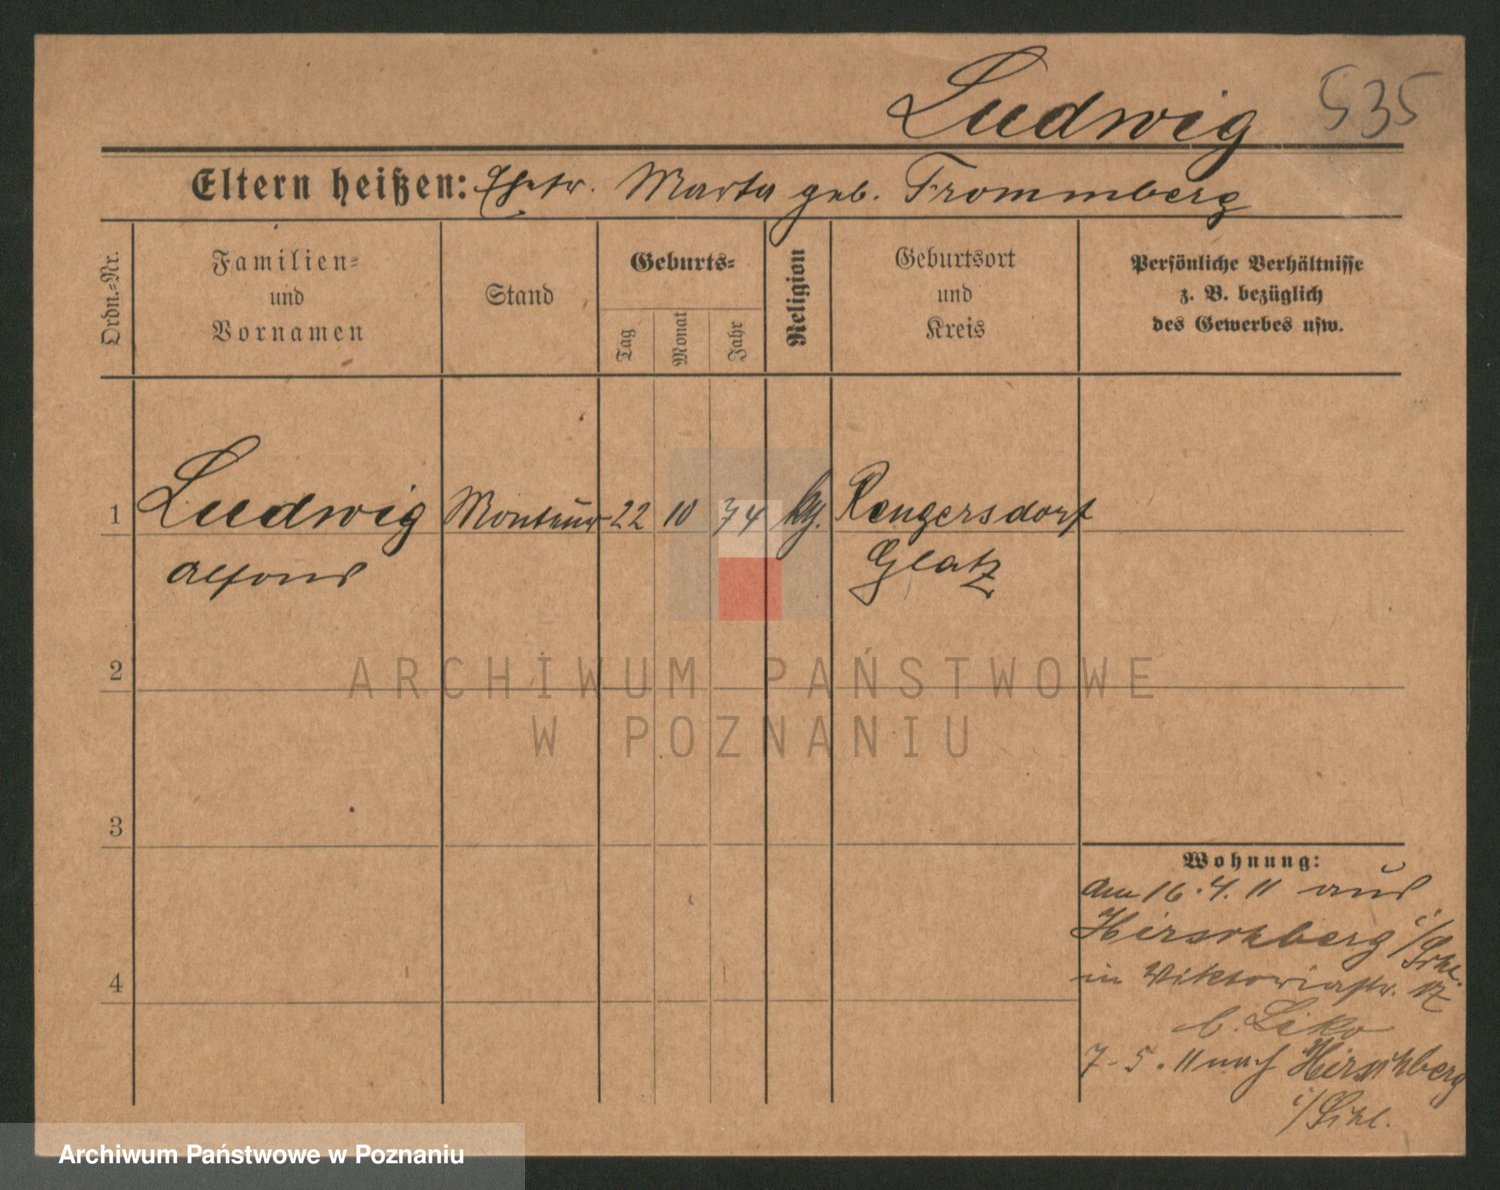 Ludwig 535
Eltern heißen: Ehefr. Marta geb. Frommberg
Ordn.-Nr.
Familien-
und
Vornamen
Stand
Geburts-
Tag
Monat
Jahr
Religion
Geburtsort
und
Kreis
Persönliche Verhältnisse
z. B. bezüglich
des Gewerbes usw.
1 Ludwig Monteur 22 10 74 kg. Rengersdorf
Alfons Glatz
2
3
4
Wohnung:
Am 16.4.11 aus
Hirschberg i/Schl.
in Viktoriastr.
b. Liko
7-5.11 nach Hirschberg
i/Schl.
ARCHIWUM PAŃSTWOWE
W POZNANIU
Archiwum Państwowe w Poznaniu